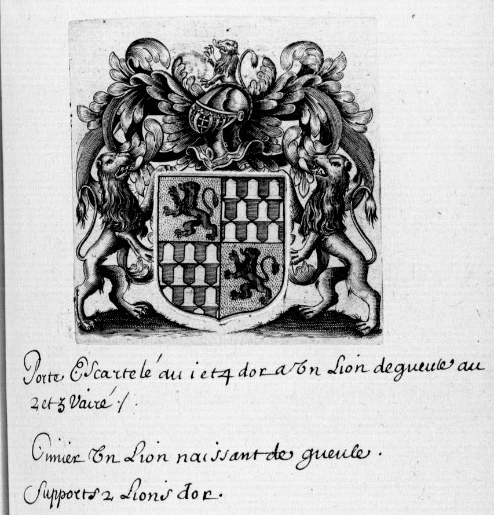 Porte Escartelé au 1 et 4 dor a Vn Lion de gueule au
2 et 3 Vairé ./
Cimier Vn Lion naissant de gueule .
Supports 2 Lions dor .